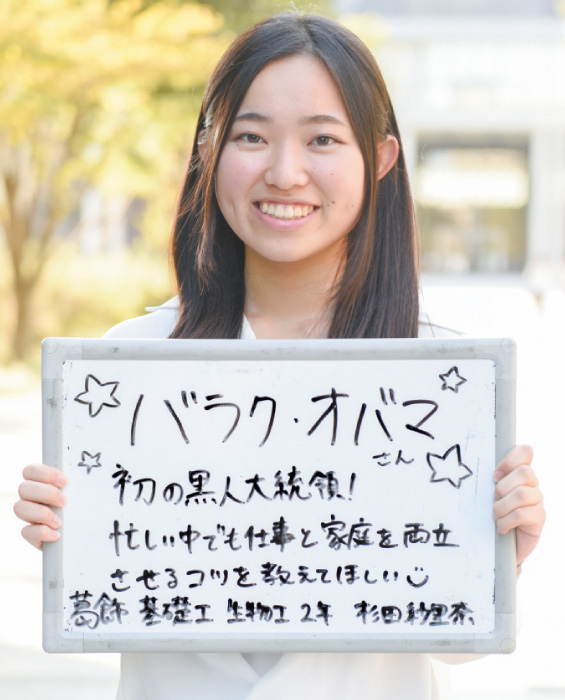 バラク・オバマ
さん
初の黒人大統領!
忙しい中でも仕事と家庭を両立
させるコツを教えてほしい
葛飾 基礎工 生物工 2年 杉田紗里奈